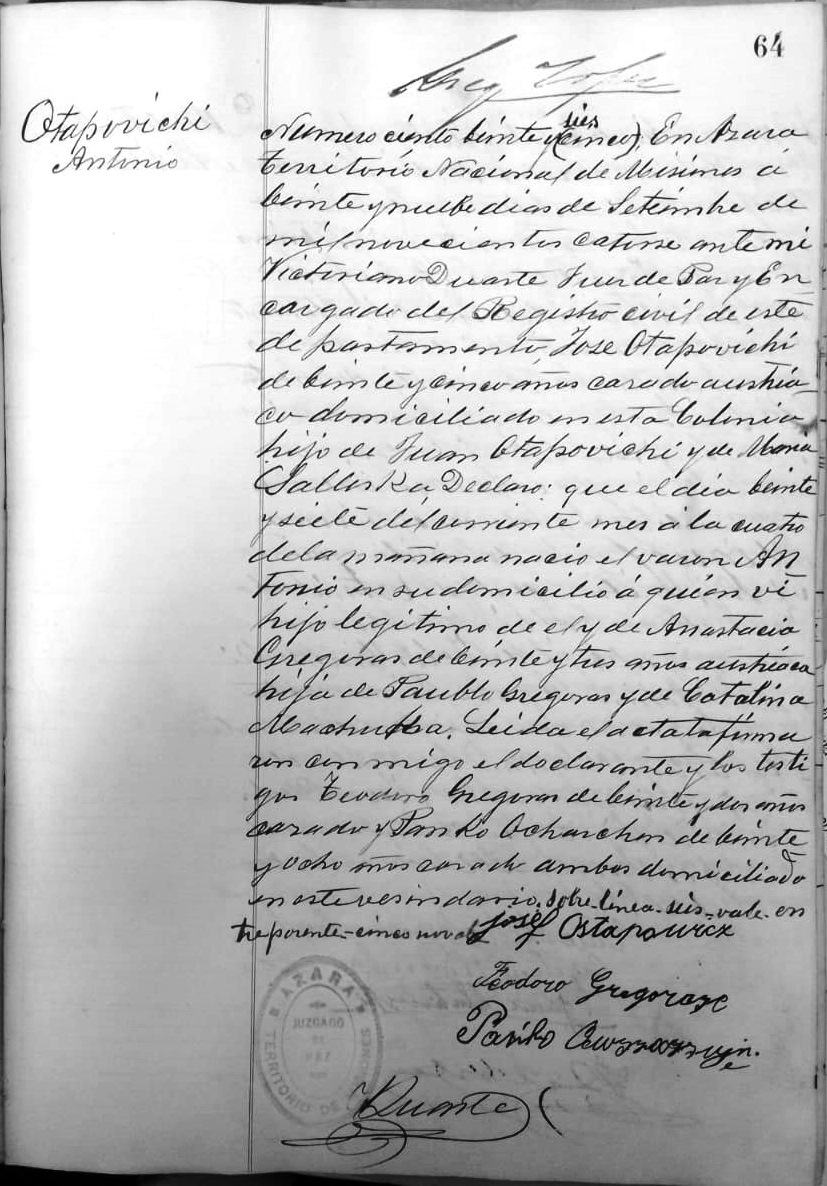 64
Otapovichi
Antonio
seis
Numero ciento beinte y (cinco), En Azara
Territorio Nacional de Misiones á
beinte y nuebe dias de Setiembre de
mil novecientos catorse ante mi
Victoriano Duarte Juez de Paz y En
cargado del Registro civil de este
departamento, Jose Otapovichi
de beinte y cinco años casado austria
co domiciliado en esta Colonia
hijo de Juan Otapovichi y de Maria
Declaro: que el dia beinte
y siete del corriente mes a la cuatro
de la mañana nacio el varon An
tonio en su domicilio á quien vi
hijo legitimo de el y de Anastacia
Gregoras de beinte y tres años austriaca
hija de Paublo Gregoras y de Catalina
Leida el acta la firma
ron conmigo el declarante y los testi
gos Teodoro Gregoras de beinte y dos años
casado y Panko de beinte
y ocho años casado ambos domiciliado
en este vesindario. sobre-linea-seis-vale-en
treparente-cinco no vale
José Ostapowicz
Teodoro Gregoraz
Pańko
AZARA
JUZGADO
DE
PAZ
TERRITORIO DE MISIONES
VDuarte